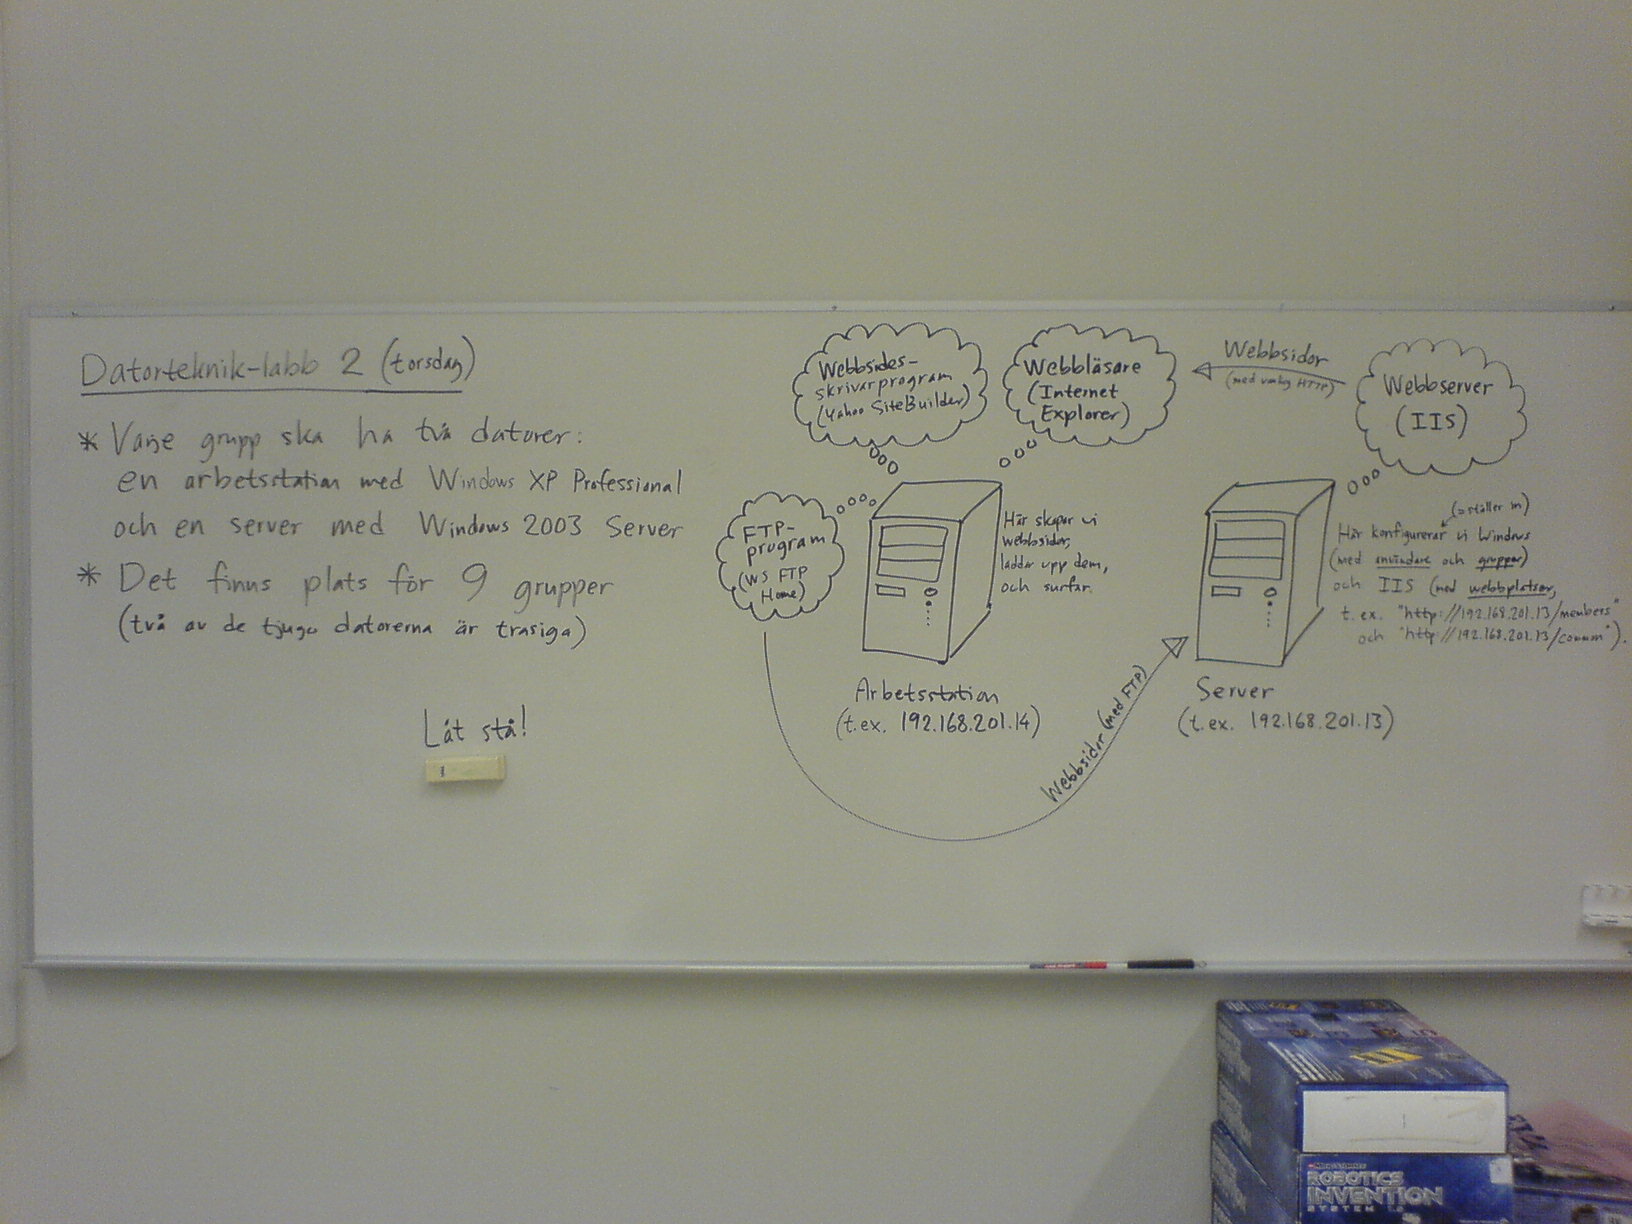 Datorteknik-labb 2 (torsdag)
* Varje grupp ska ha två datorer:
en arbetsstation med Windows XP Professional
och en server med Windows 2003 Server
* Det finns plats för 9 grupper
(två av de tjugo datorerna är trasiga)
Låt stå!
Webbsides-
skrivarprogram
(Yahoo SiteBuilder)
Webbläsare
(Internet
Explorer)
Webbsidor
(med vanlig HTTP)
Webbserver
(IIS)
FTP-
program
(WS FTP
Home)
Här skapar vi
webbsidor,
laddar upp dem,
och surfar.
(=ställer in)
Här konfigurerar vi Windows
(med användare och grupper)
och IIS (med webbplatser,
t. ex. "http://192.168.201.13/members"
och "http://192.168.201.13/comm").
Arbetsstation
(t.ex. 192.168.201.14)
Webbsidor (med FTP)
Server
(t.ex. 192.168.201.13)
ROBOTICS
INVENTION
SYSTEM